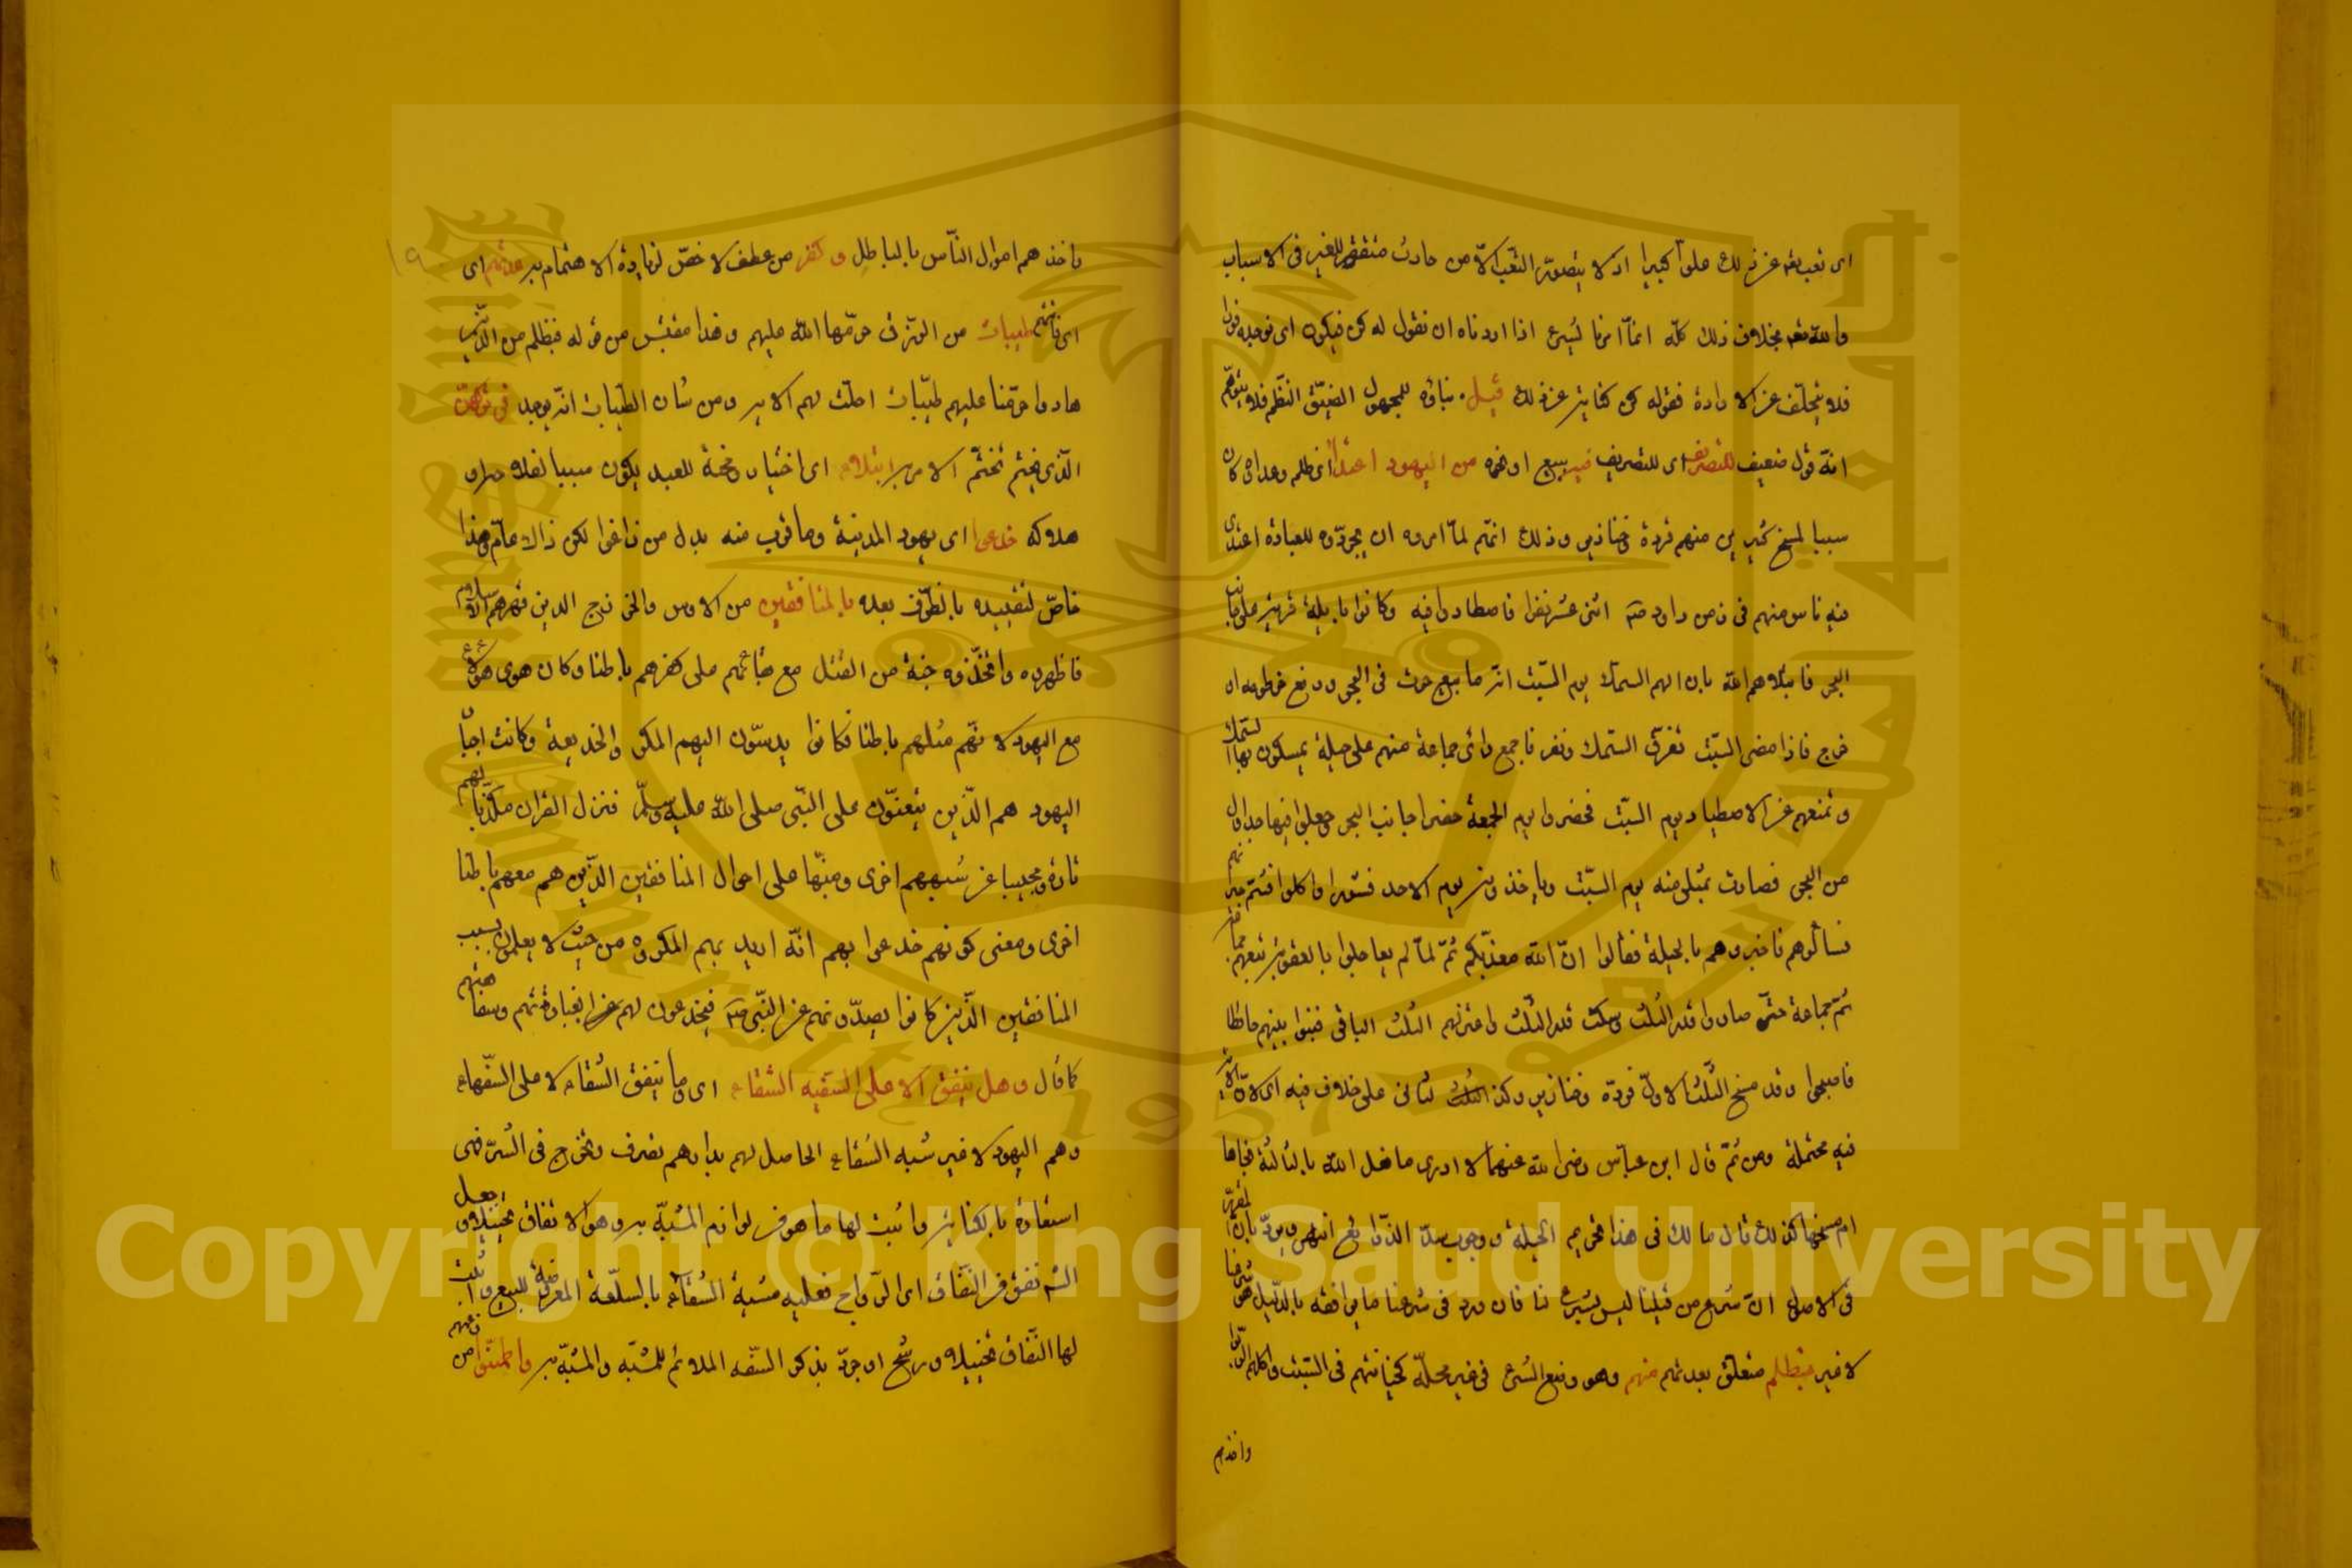 اى تعب تعه عن ذلك علوّا كبيرا اذ لا يتصوّر التعب الاّ من حادث مفتقر للغير فى الاسباب
والله تعه بخلاف ذلك كلّه انمّا امرنا لشيء اذا اردناه ان نقول له كن فيكون اى نوجده فورا
فلا يتخلّف عن الارادة فقوله كن كناية عن ذلك قيل بناؤه للمجهول لضيق النّظم فلا يتوهّم
انّه قول ضعيف للتصريف اى للتصريف فيه ببيع او نحوه من اليهود اعتداء اى ظلم وعدا كان
سببا لمسخ كثيرين منهم قردة وخنازير وذلك انهّم لمّا امروه ان يجرّدوه للعبادة اعتدى
فيه ناس منهم فى زمن داود اثنى عشر نفرا فاصطادوا فيه وكانوا بايلة قرية على جانب
البحر فابتلاهم الله بان الهم السمك يوم السّبت انّه ما بقى حوت فى البحر ورفع خرطومه او
خرج فاذا مضى السّبت تفرّق السّمك ونفر فاجمع رأى جماعة منهم على حيلة يمسكون بها السّمك
وتمنعهم عن الاصطياد يوم السّبت فحضروا يوم الجمعة حضرا جانب البحر وجعلوا فيها جداول
من البحر فصارت تمتلى منه يوم السّبت وياخذونه يوم الاحد فشووا واكلوا فشمّ جيرانهم
فسألوهم فاخبروهم بالحيلة فقالوا انّ الله معذّبكم ثمّ لمّا لم يعاجلوا بالعقوبة تبعهم جماعة
ثمّ جماعة حتّى صاروا قدر الثلث وسكت قدر الثّلث واعتزلهم الثلث الباقى فبنوا بينهم حائطا
فاصبحوا وقد مسخ الثّلث الاول قردة وخنازير وكذا الثلث الثانى على خلاف فيه اى لانّ الآية
فيه محتملة ومن ثمّ قال ابن عبّاس رضى الله عنهما لا ادرى ما فعل الله بالثالثة انجاها
ام مسخها كذلك قال مالك فى هذا تحريم الحيلة ووجوب سدّ الذّرايع انتهى ويردّ بان المقرّر
فى الاصول انّ شرع من قبلنا ليس بشرع لنا فان ورد فى شرعنا ما يوافقه فالدّليل شرعنا
لا غير فبظلم متعلّق بعدتهم منهم وهو وضع الشئ فى غير محلّه كخيانتهم فى السّبت واكلهم الرّبوا
واخذهم
١٩
واخذهم اموال النّاس بالباطل وكفر من عطف الاخصّ لزيادة الاهتمام به عدتهم اى
اى فاتتهم طيبات من الرّزق حرّمها الله عليهم وهذا مقتبس من قوله فبظلم من الّذين
هادوا حرّمنا عليهم طيّبات احلّت لهم الاية ومن شأن الطّيبات انّه يوجد فى تركهنّ
الّذى تحتّم الامر به ابتلاء اى اختبار ومحنة للعبد يكون سببا لفلاحه او
هلاكه خدعوا اى يهود المدينة وما قرب منه بدل من زاغوا لكن ذاك عامّ وهذا
خاصّ لتقييده بالظّرف بعده بالمنافقين من الاوس والخزرج الذين قهرهم الاسلام
فاظهروه واتخّذوه جنة من القتل مع بقائهم على كفرهم باطنا وكان هوى هؤلاء
مع اليهود لانهّم مثلهم باطنا فكانوا يدسّون اليهم المكر والخديعة وكانت احبار
اليهود هم الّذين يتعنّتون على النّبى صلى الله عليه وسلّم فنزل القران مكذّبا لهم
تارة ومجيبا عن شبههم اخرى ومنبّها على احوال المنافقين الّذين هم معهم باطنا
اخرى ومعنى كونهم خدعوا بهم انّه اريد بهم المكروه من حيث لا يعلمون بسبب
المنافقين الّذين كانوا يصدّونهم عن النّبى فيخدعون لهم لغباوتهم وسفاهتهم
كما قال وهل ينفق الا على السّفيه الشّقاء اى وما ينفق الشّقاء الا على السّفهاء
وهم اليهود لا غير شبه الشّقاء الحاصل لهم بدراهم تصرف وتخرج فى الشّر فهى
استعارة بالكناية واثبت لها ما هو من لوازم المشبّه به وهو الانفاق تخييلا او جعل
الشّقاء من النّفاق اى الرّواج فعليه مشبه الشّقاء بالسلّعة المعرضة للبيع واثبت
لها النّفاق تخييلا ورشّح او جرّد بذكر السّفه الملائم للمشبّه والمشبّه به واطمئنّوا من زعمهم
Copyright © King Saud University
1957